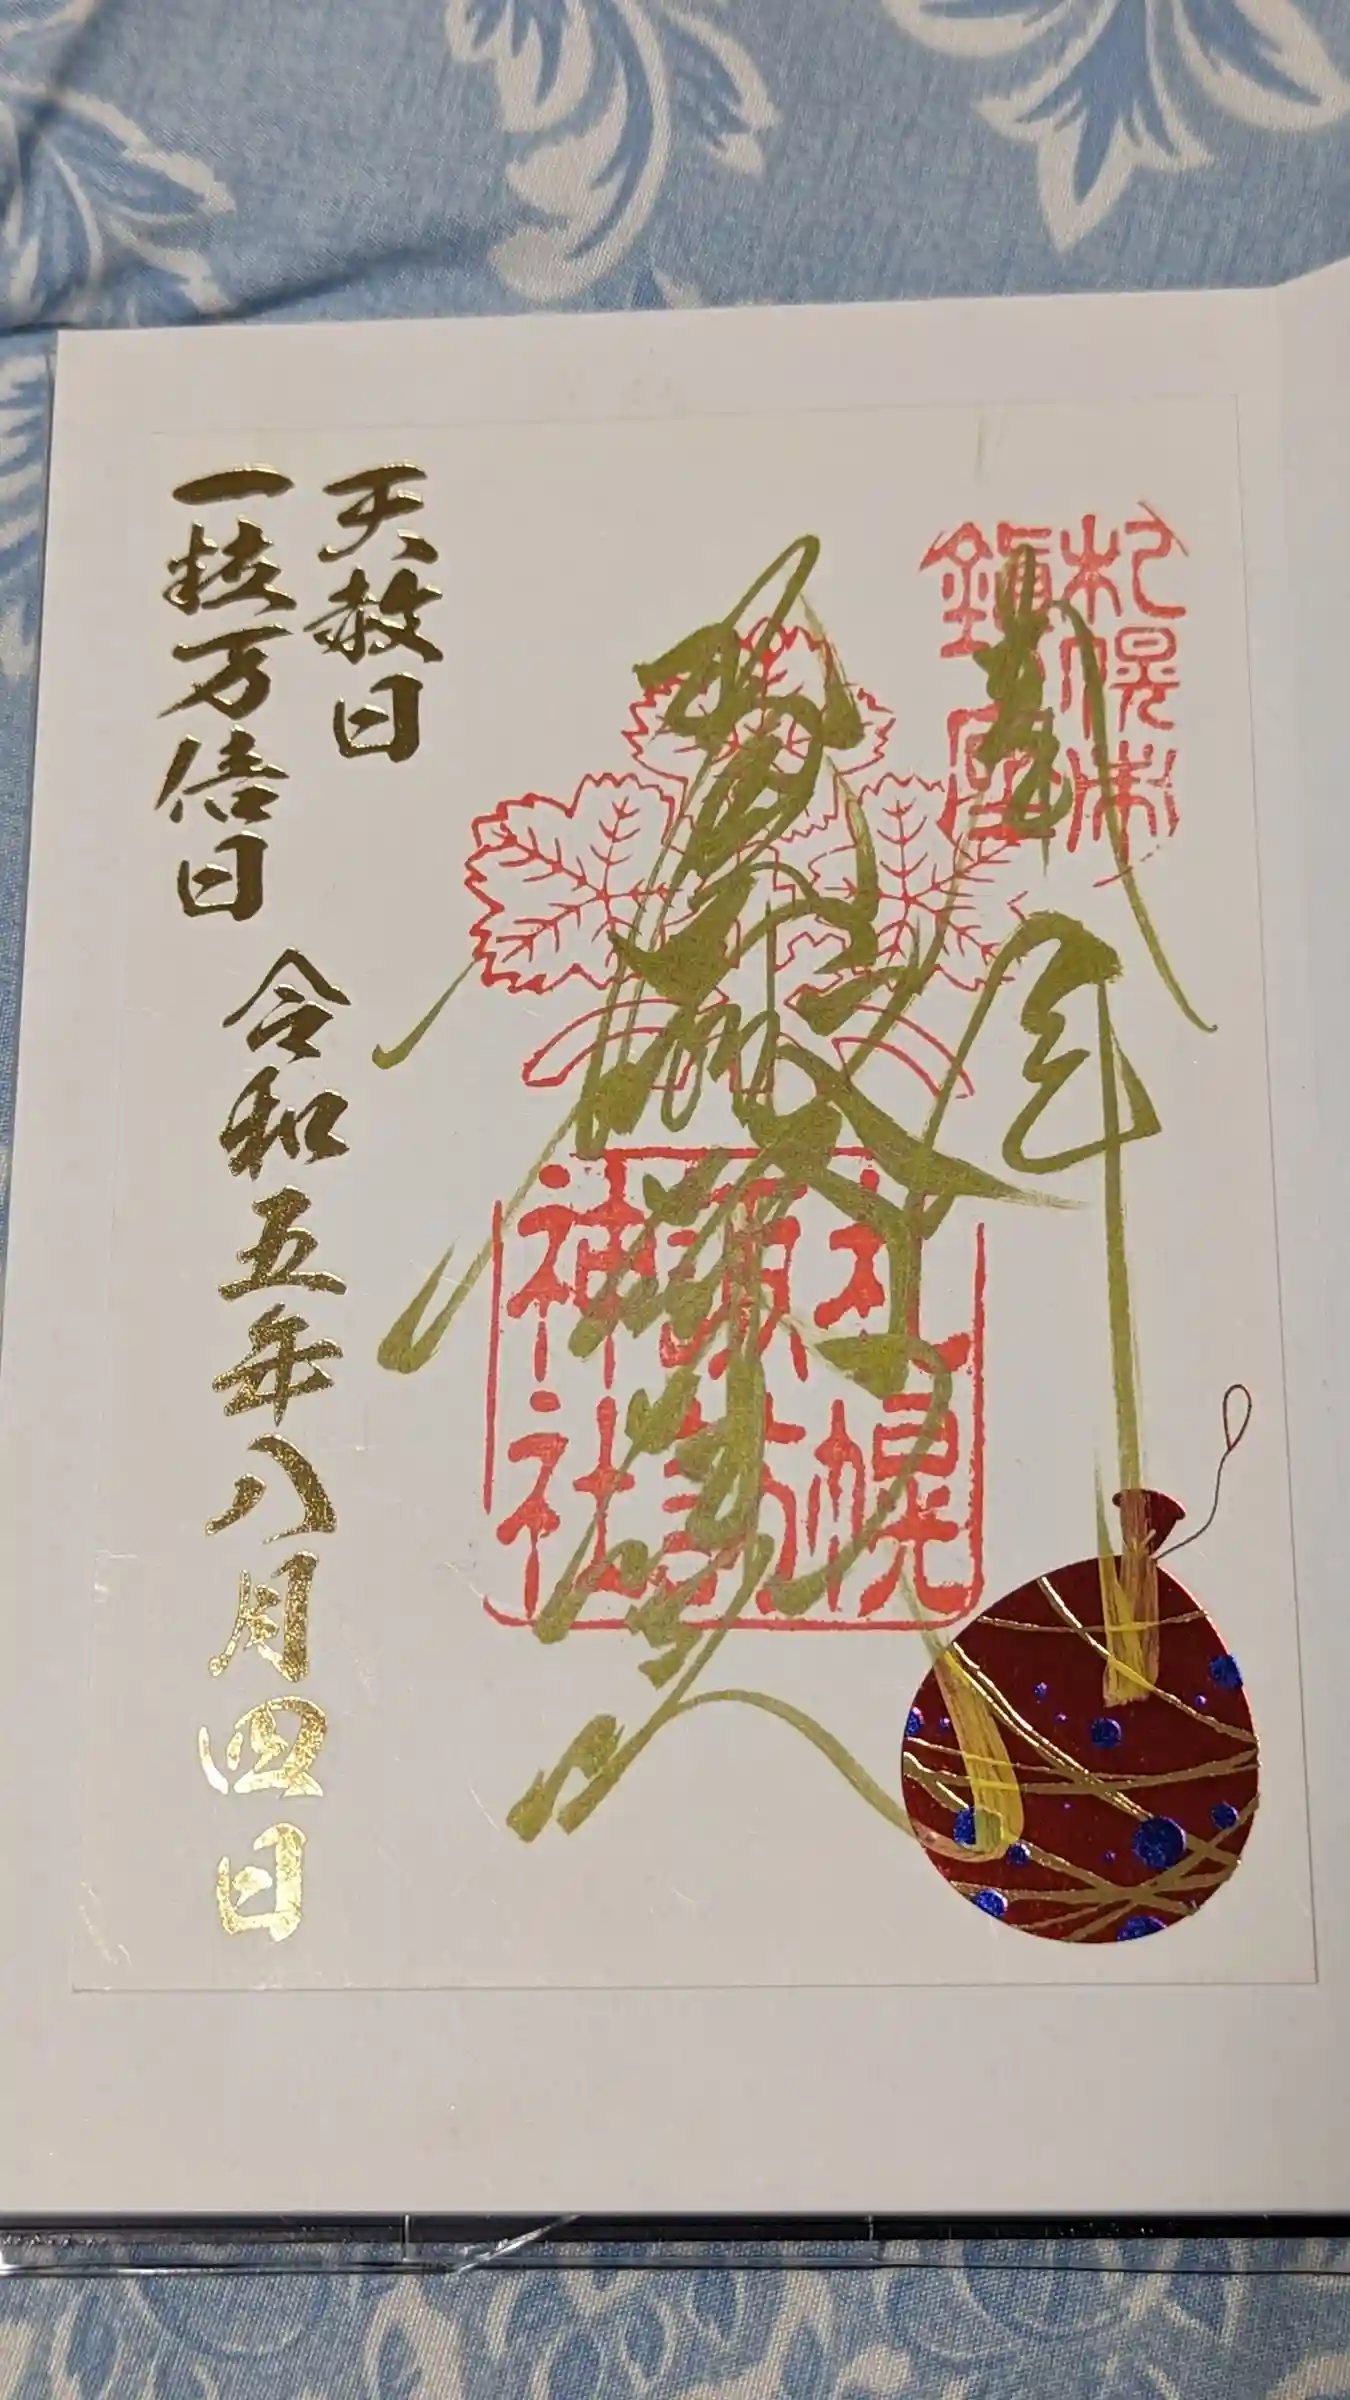 札幌市
鎮座
奉拝
札幌
諏訪
神社
天赦日
一粒万倍日
令和五年八月四日